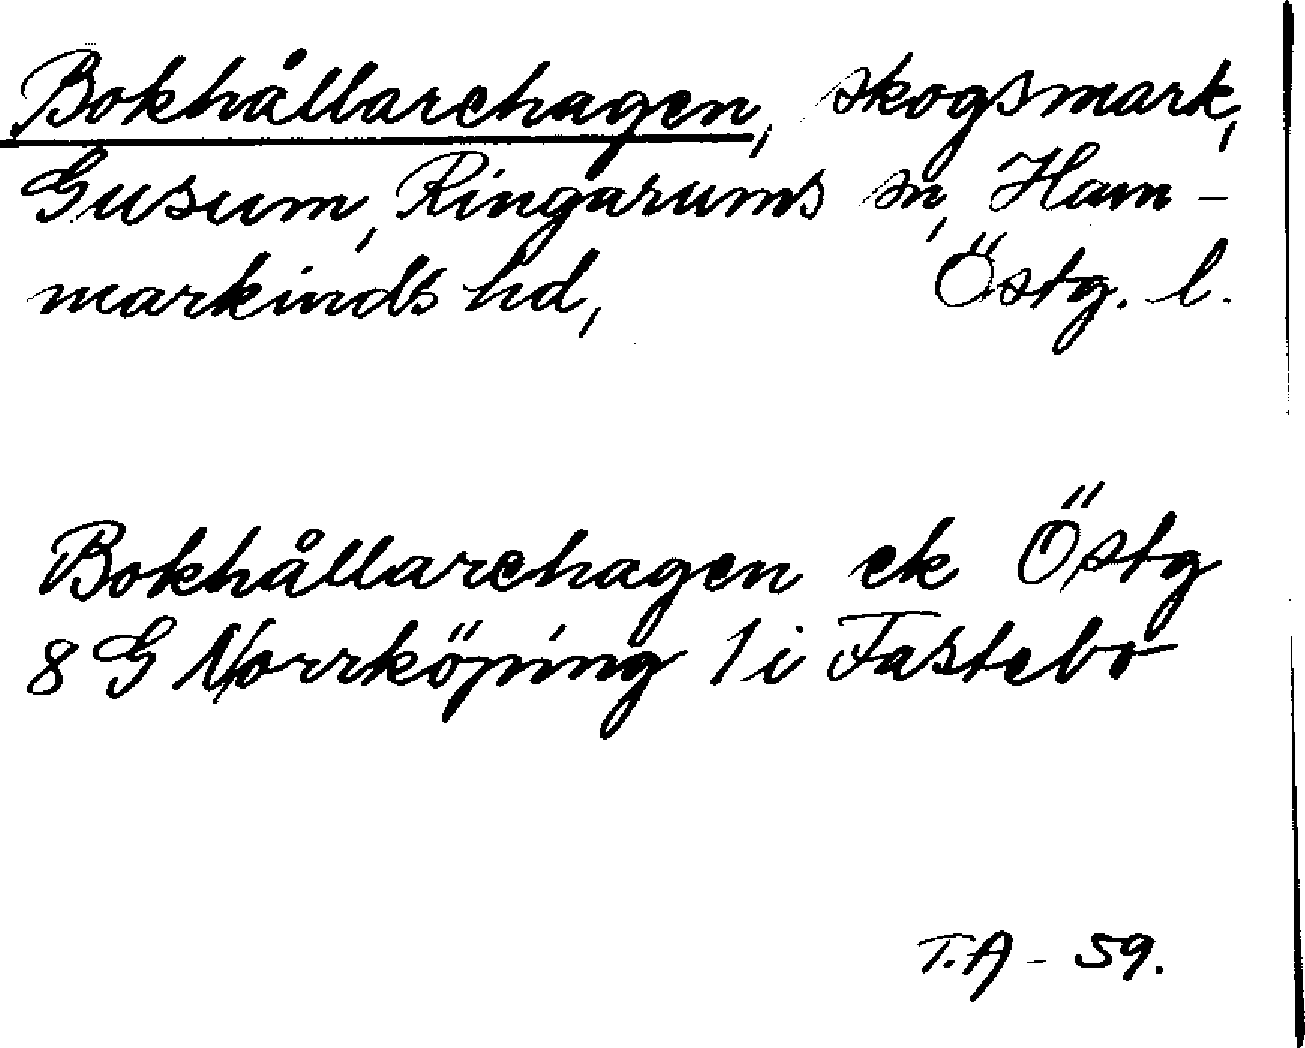 Bokhållarehagen, skogsmark,
Gusum, Ringarums sn, Ham-
markinds hd, Östg. l.
Bokhållarehagen ek Östg
8 G Norrköping 1 i Fastebo
T.A - 59.